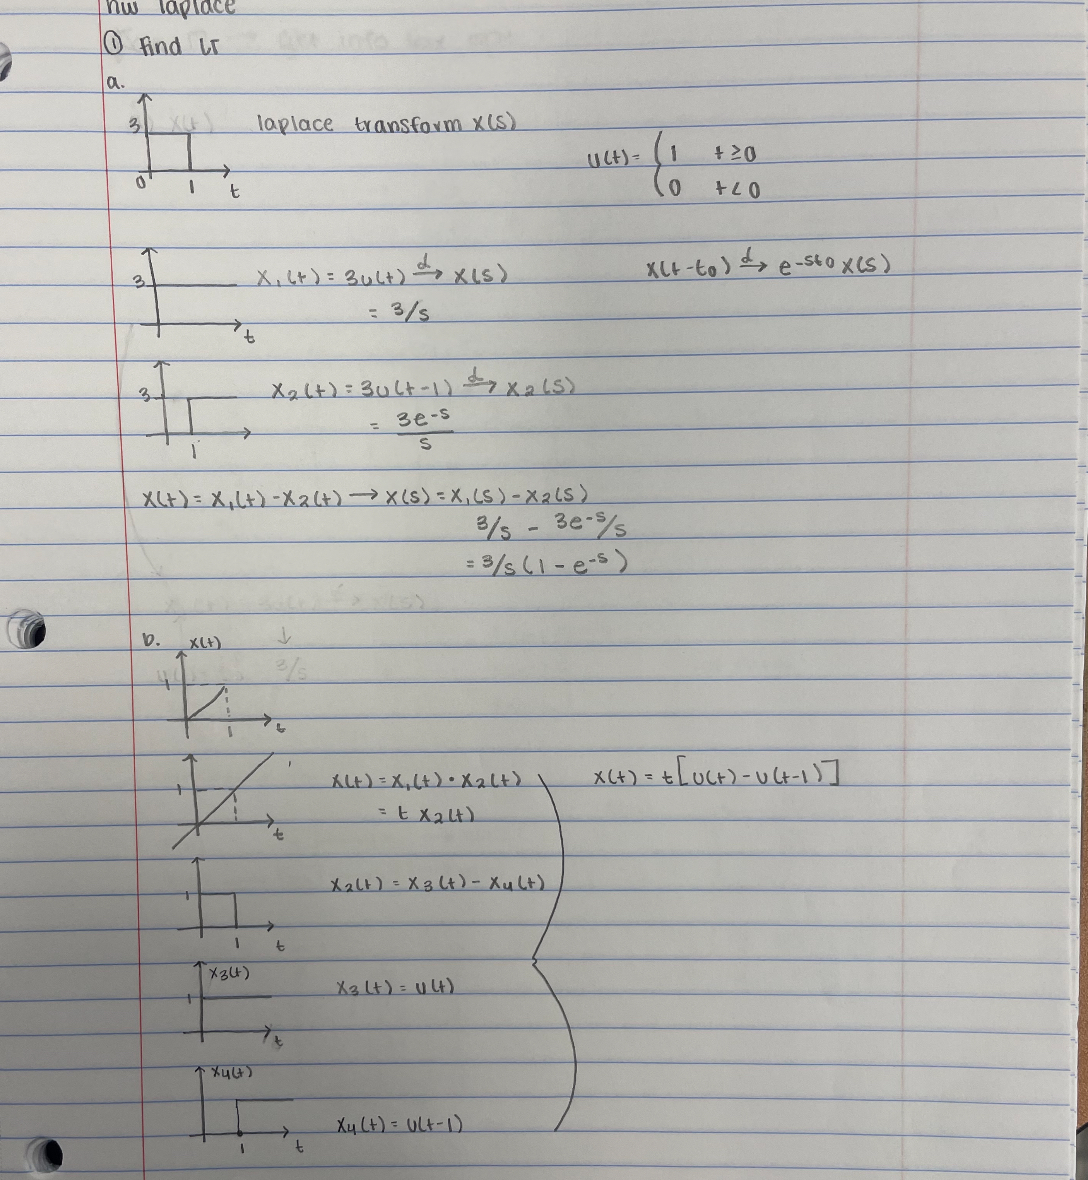 hw laplace
① Find LT
a.
3
0 1 t
laplace transform X(s)
u(t) = { 1 t≥0
0 t<0
3
t
x₁(t) = 3u(t) →ℒ X(s)
= 3/s
x(t-t₀) →ℒ e^-st₀ X(s)
3
1
x₂(t) = 3u(t-1) →ℒ X₂(s)
= 3e^-s
s
x(t) = x₁(t) - x₂(t) → X(s) = X₁(s) - X₂(s)
3/s - 3e^-s/s
= 3/s (1 - e^-s)
b. x(t)
1
1 t
1
t
x(t) = x₁(t) · x₂(t)
= t x₂(t)
x(t) = t[u(t) - u(t-1)]
1
1 t
x₂(t) = x₃(t) - x₄(t)
x₃(t)
1
t
x₃(t) = u(t)
x₄(t)
1 t
x₄(t) = u(t-1)